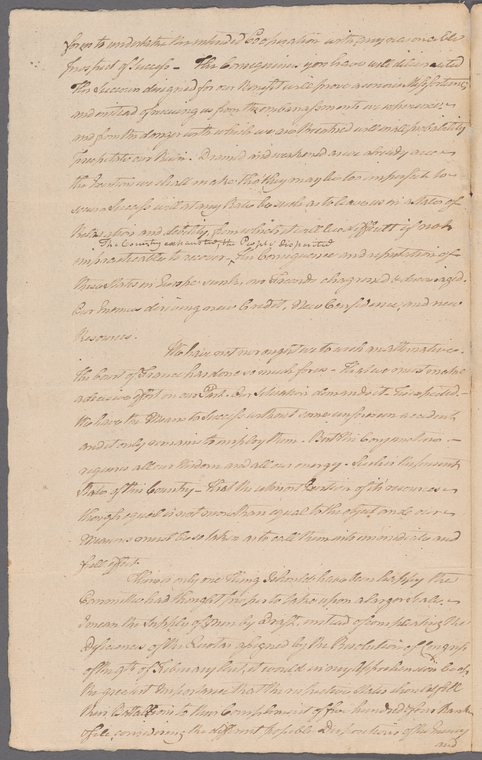 force to undertake the intended Cooperation with any reasonable
Prospect of Success - The Consequences you have will discerned
The Succour designed for our Benefit will prove a serious Misfortune,
and instead of rescuing us from the embarrassments we experience
and from the danger with which we are threatened will in all probability
precipitate our Ruin. Drained and weakened as we already are
the Exertion we shall make tho' they may be too imperfect to
secure Success will at any Rate be such as to leave us in a State of
Relaxation and debility, from which it will be difficult if not
The Country exhausted, the People dispirited
impracticable to recover, The Consequence and reputation of
these States in Europe sunk, our Friends chagrined & discouraged
Our Enemies deriving new Credit, New Confidence, and new
Resources.
We have not in our power to such an alternative.
The Court of France has done so much for us - that we must make
a decisive effort on our Part. Our Situation demands it
We have the Means to Success without some unforeseen accident,
and it only remains to employ them. But the Conjuncture
requires all our Wisdom and all our energy. Such is the present
State of this Country - that the utmost Exertion of its resources
though equal is not more than equal to the object and our
Measures must be so taken as to call them into immediate and
full effect.
There is only one thing I should have been happy the
Committee had thought proper to take upon a larger Scale,
I mean the Supply of Men by Draft, instead of compleating the
Deficiency of the Quotas assigned by the Resolution of Congress
of the 9th of February last, it would in my Apprehension be of
the greatest Importance that the respective States should fill
their Battalions to their Compliment of five hundred & four Rank
& file considering the different possible Dispositions of the Enemy
and